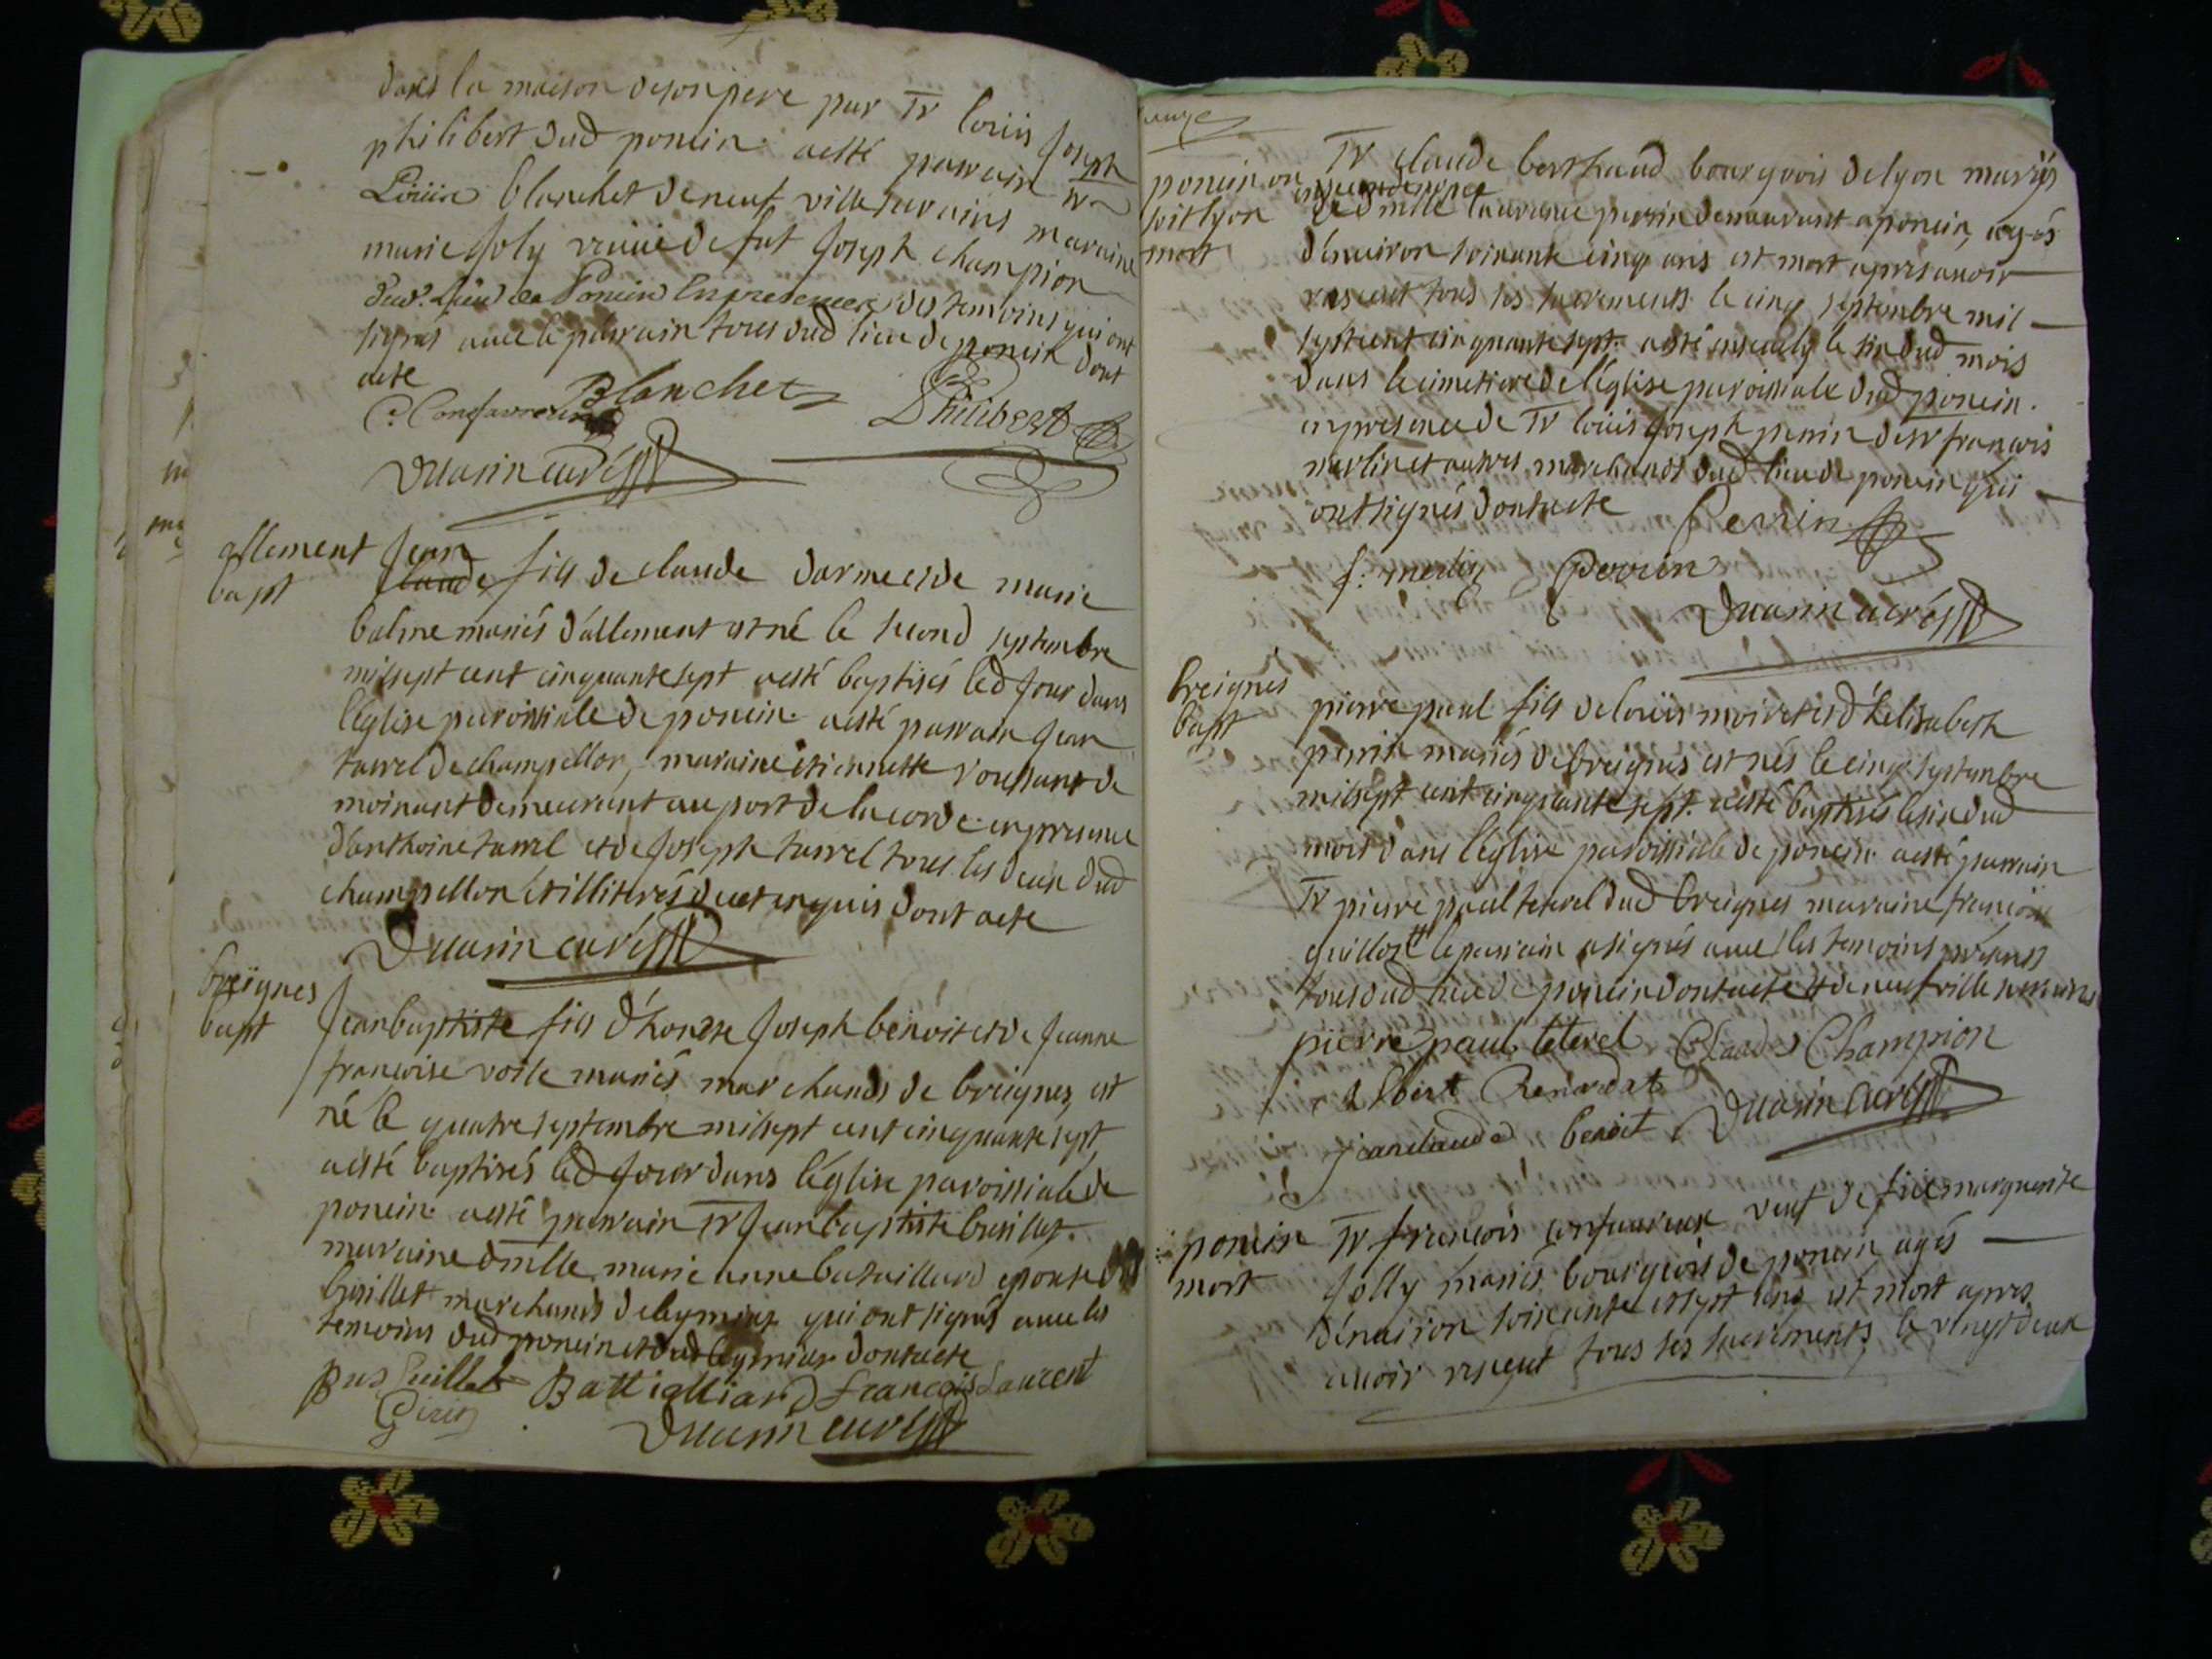 dans la maison de son pere par sr louis Joseph
philibert dud poncin a esté parrain sr
Louis blanchet de neuf ville sur ains maraine
marie Joly veuve de fut Joseph champion
dud. lieu de Poncin En presence des temoins qui ont
signés avec le parrain tous dud lieu de poncin dont
acte
Blanchet Philibert
C. Confavreux
Duarin curé
allement
bapt
Jean
claude fils de claude darme et de marie
balme mariés d'allement est né le second septembre
mil sept cent cinquante sept a esté baptisés led Jour dans
l'église paroissiale de poncin a esté parrain Jean
tarrel de champellon, maraine etiennette
moinant demeurant au port de la corde en presence
d'anthoine tarrel et de Joseph tarrel tous les deux dud
champellon et illiterés de ce enquis dont acte
Duarin curé
breignes
bapt
Jean baptiste fils d'honete Joseph benoit et de Jeanne
francoise mariés marchands de breignes, est
né le quatre septembre mil sept cent cinquante sept
a esté baptisés led Jour dans l'église paroissiale de
poncin a esté parrain sr Jean baptiste
maraine dmlle marie anne bataillard epouse
marchands de leymint qui ont signés avec les
temoins dud poncin et dud leymint dont acte
Battailliard francois Laurent
Duarin curé
poncin ou
soit lyon
mort
sr claude berthaud bourgeois de lyon mariés
de dmlle laurance perrin demeurant a poncin, agés
d'environ soixante cinq ans est mort apres avoir
resceut tous ses sacrements le cinq septembre mil
sept cent cinquante sept. a esté enseuely le six dud mois
dans le cimetiere de l'église paroissiale dud poncin.
en presence de sr louis Joseph perrin de sr francois
merlin et autres marchands dud lieu de poncin qui
ont signés dont acte Perrin
f: merlin Perrin
Duarin curé
breignes
bapt
pierre paul fils de louis moiret et d'helisabeth
perrin mariés de breignes est nés le cinq septembre
mil sept cent cinquante sept. a esté baptisés le six dud
mois dans l'église paroissiale de poncin a esté parrain
sr pierre paul tetarel dud breignes maraine francoise
guillot le parrain a signés avec les temoins presents
tous dud lieu de poncin dont acte et de neuf ville sur ains
pierre paul teterel Claude Champion
albert Renardat
jean claude benoit Duarin Curé
poncin
mort
sr francois confavreux veuf de feüe marguerite
Jolly mariés bourgeois de poncin agés
d'environ soixante et sept ans est mort apres
avoir resceut tous ses sacrements le vingt deux